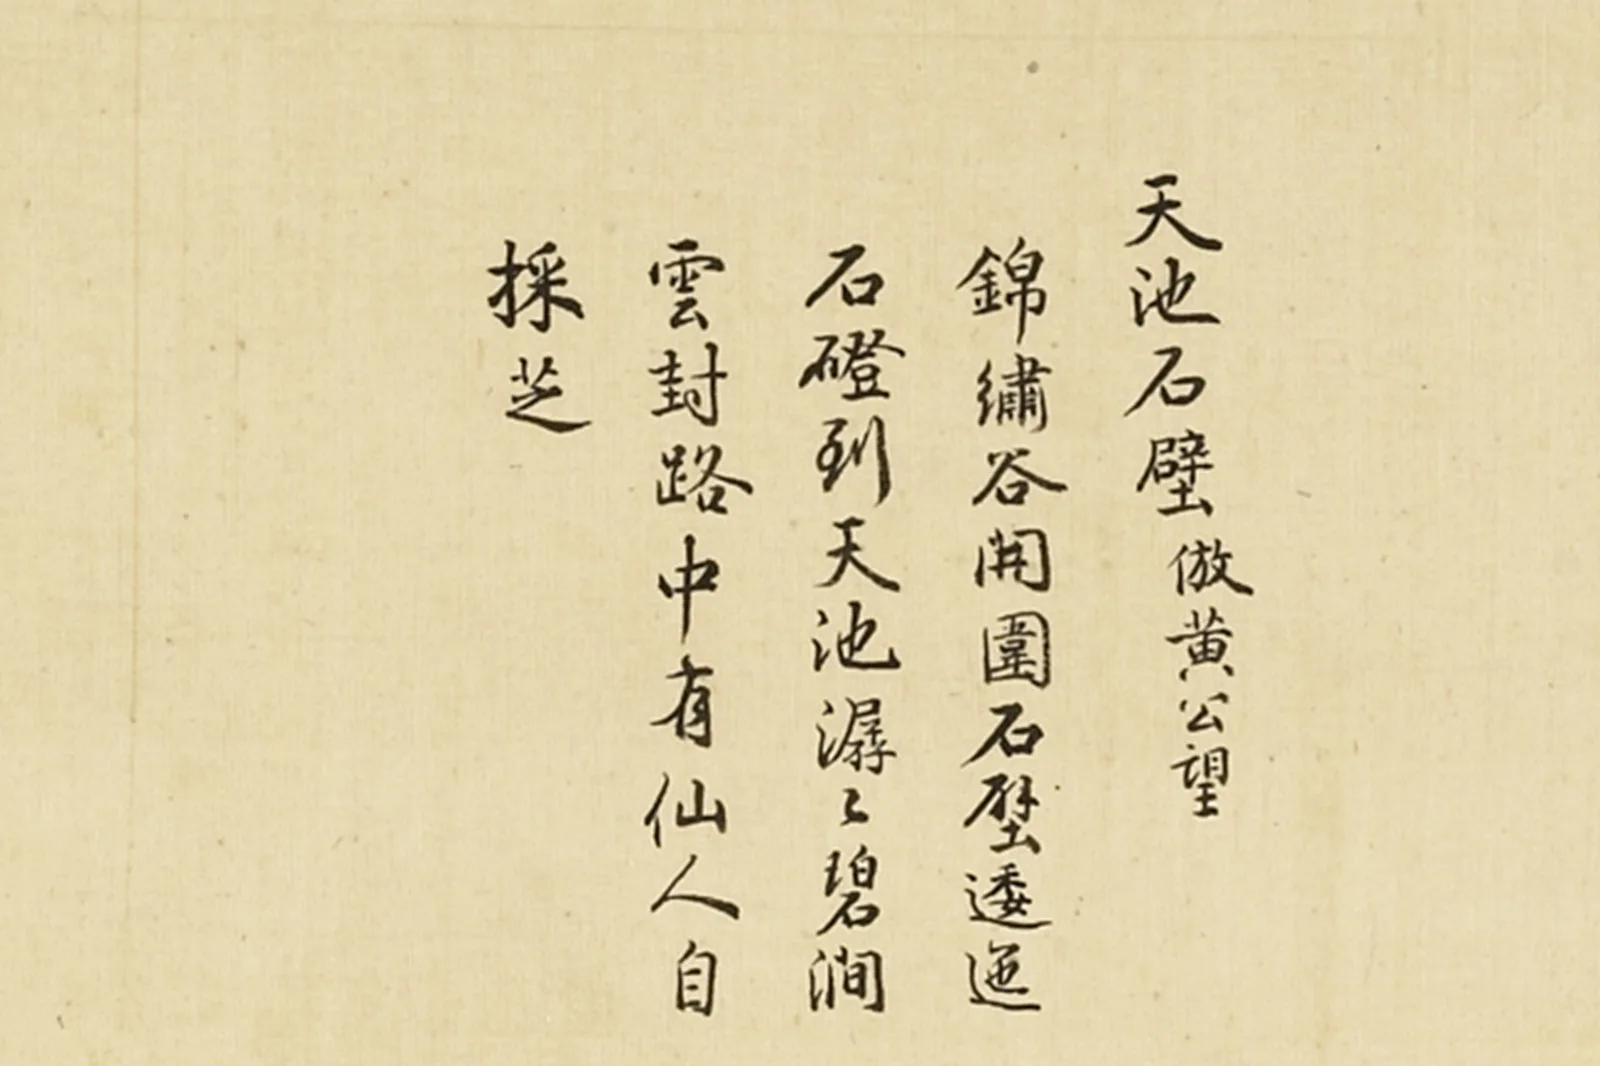 天池石壁倣黄公望
錦繡谷開圍石壁逶迤
石磴到天池潺〻碧澗
雲封路中有仙人自
採芝